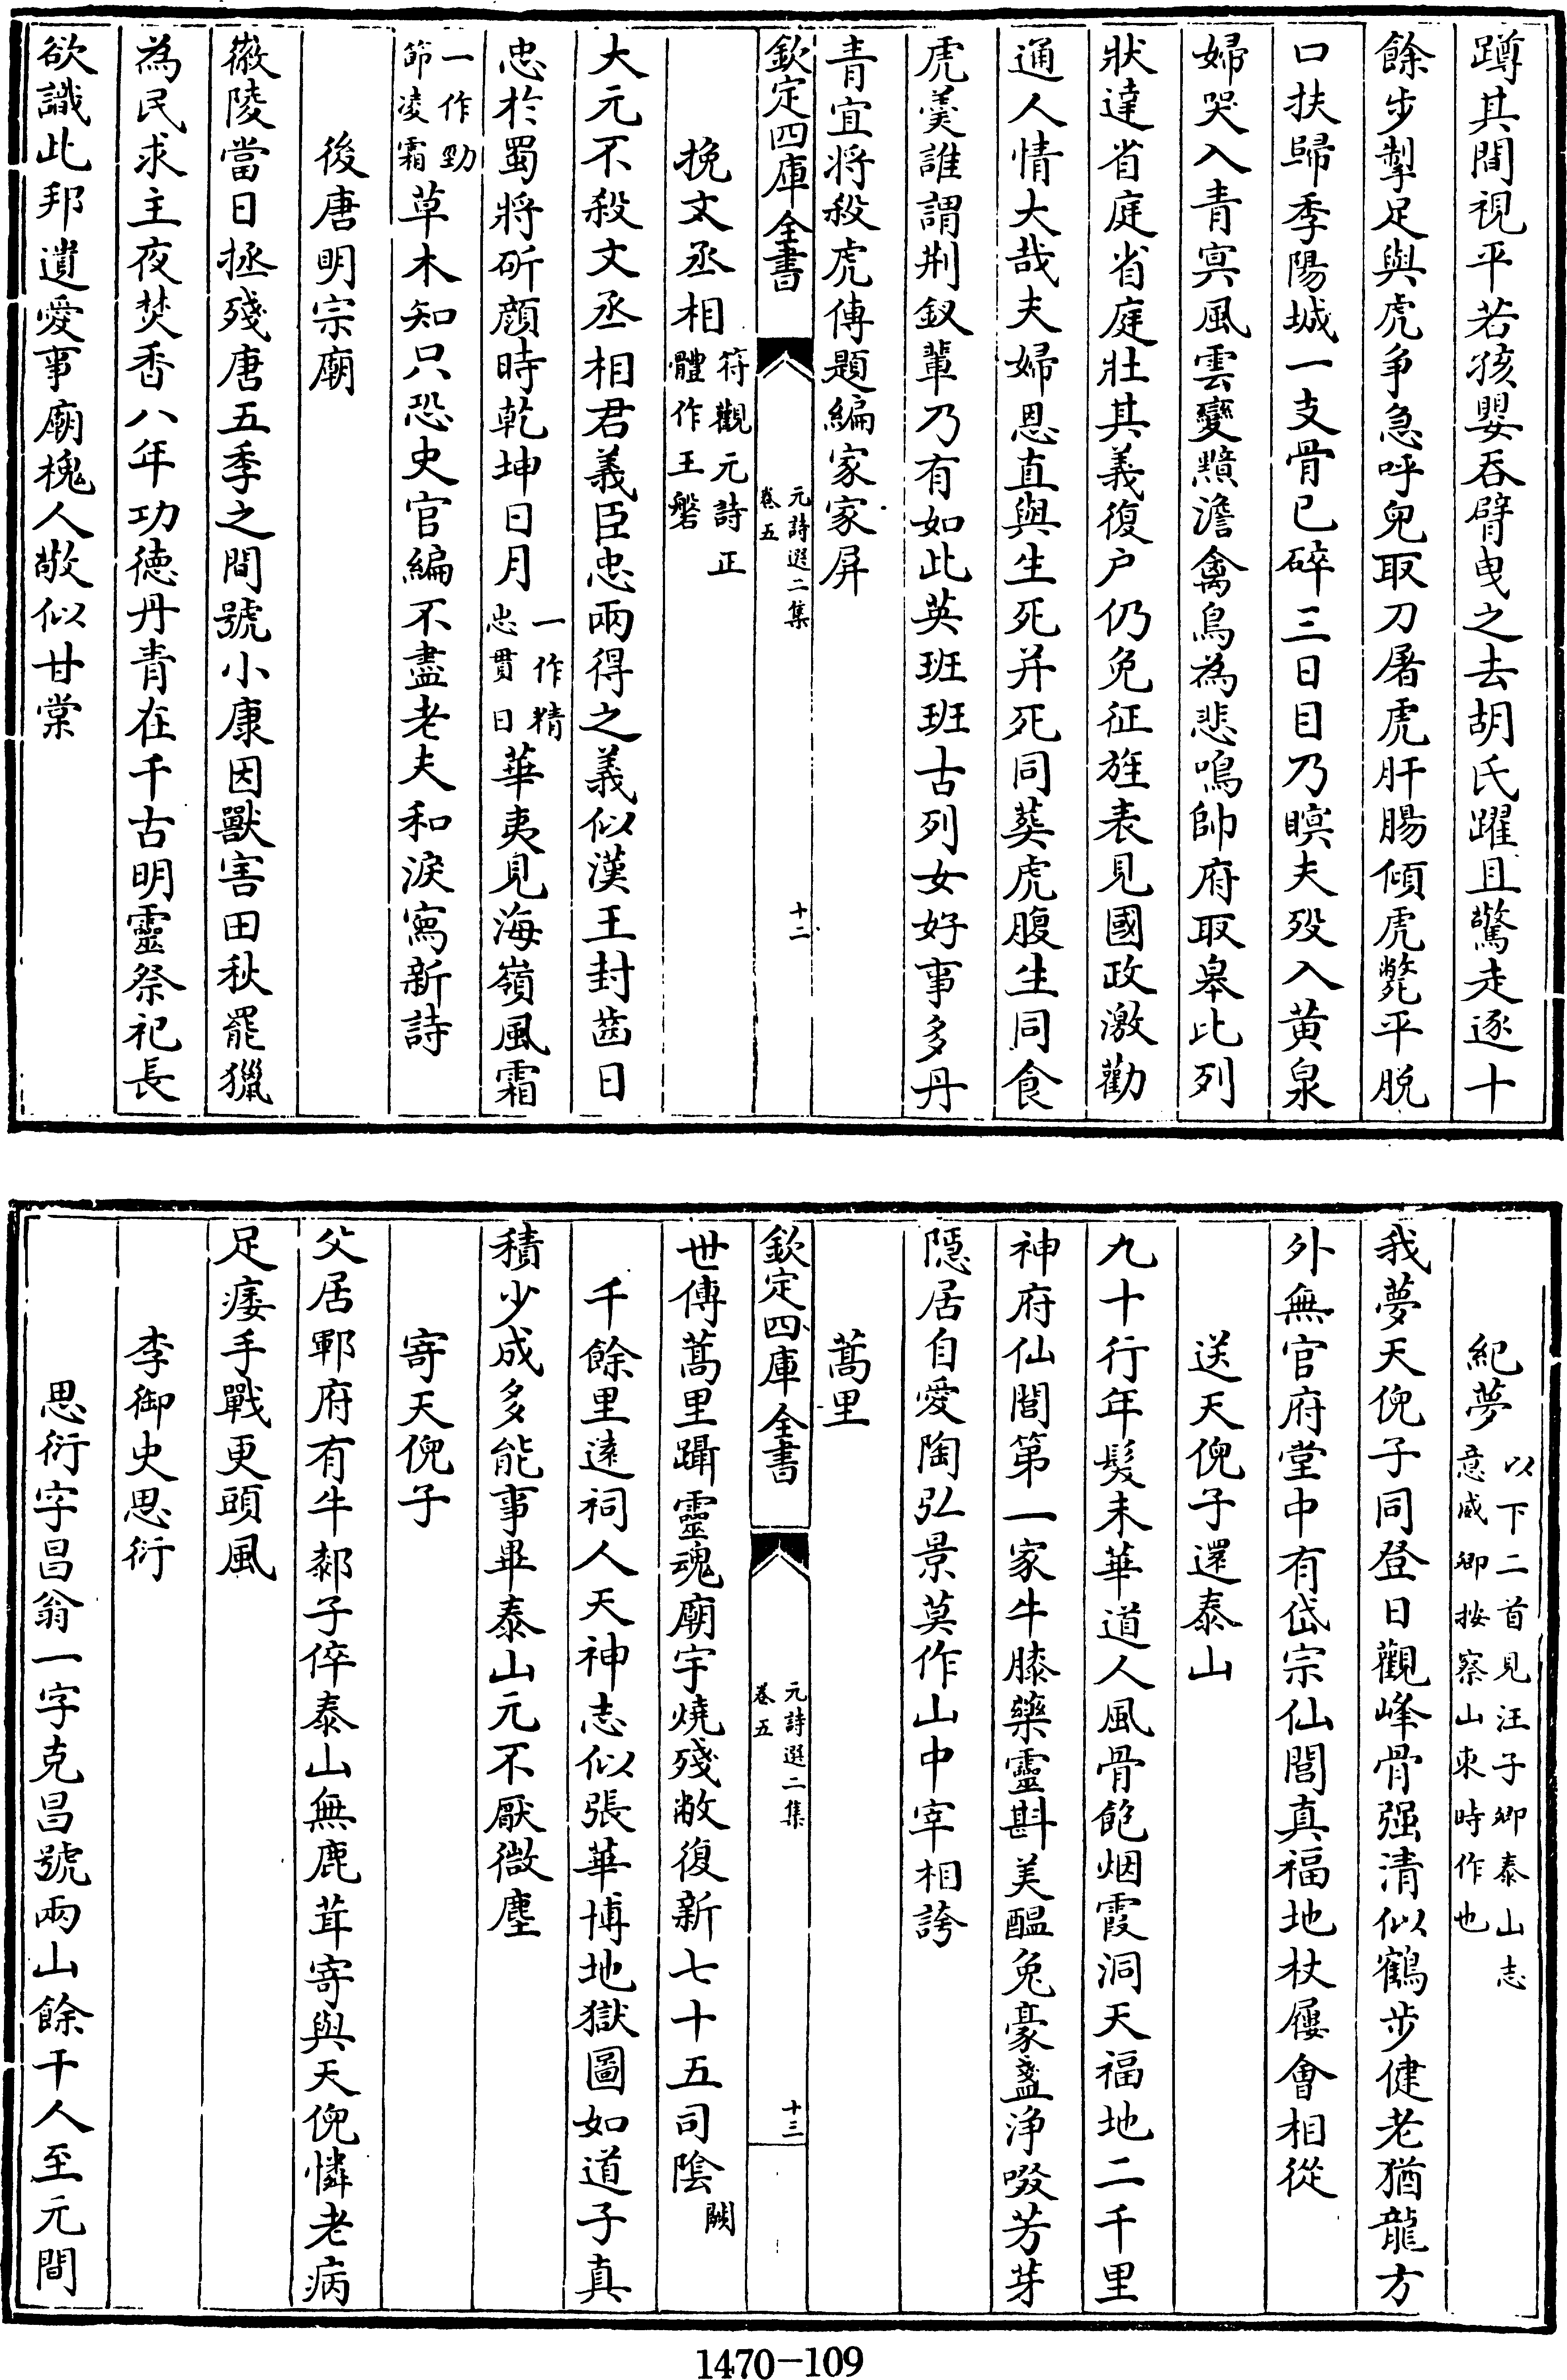 蹲其間視平若孩嬰吞臂曳之去胡氏躍且驚走逐十
餘步掣足與虎爭急呼兒取刀屠虎肝腸傾虎斃平脫
口扶歸季陽城一支骨已碎三日目乃瞑夫歿入黃泉
婦哭入青冥風雲變黯澹禽鳥為悲鳴帥府取皋比列
狀達省庭省庭壯其義復户仍免征旌表見國政激勸
通人情大哉夫婦恩直與生死并死同葬虎腹生同食
虎羹誰謂荆釵輩乃有如此英班班古列女好事多丹
青宜將殺虎傳題編家家屏
欽定四庫全書
元詩選二集
卷五
十二
挽文丞相符觀元詩正
體作王磐
大元不殺文丞相君義臣忠兩得之義似漢王封齒日
忠於蜀將斫顔時乾坤日月一作精
忠貫日華夷見海嶺風霜
一作勁
節凌霜草木知只恐史官編不盡老夫和淚寫新詩
後唐明宗廟
徽陵當日拯殘唐五季之間號小康因獸害田秋罷獵
為民求主夜焚香八年功德丹青在千古明靈祭祀長
欲識此邦遺愛事廟槐人敬似甘棠
紀夢以下二首見汪子卿泰山志
意威卿按察山東時作也
我夢天倪子同登日觀峰骨强清似鶴步健老猶龍方
外無官府堂中有岱宗仙閭真福地杖屨會相從
送天倪子還泰山
九十行年髮未華道人風骨飽烟霞洞天福地二千里
神府仙閭第一家牛膝藥靈斟美醞兔豪盞淨啜芳芽
隱居自愛陶弘景莫作山中宰相誇
欽定四庫全書
元詩選二集
卷五
十三
蒿里
世傳蒿里躡靈魂廟宇燒殘敝復新七十五司陰闕
千餘里遠祠人天神志似張華博地獄圖如道子真
積少成多能事畢泰山元不厭微塵
寄天倪子
父居鄆府有牛郝子倅泰山無鹿茸寄與天倪憐老病
足痿手戰更頭風
李御史思衍
思衍字昌翁一字克昌號兩山餘干人至元間
1470-109